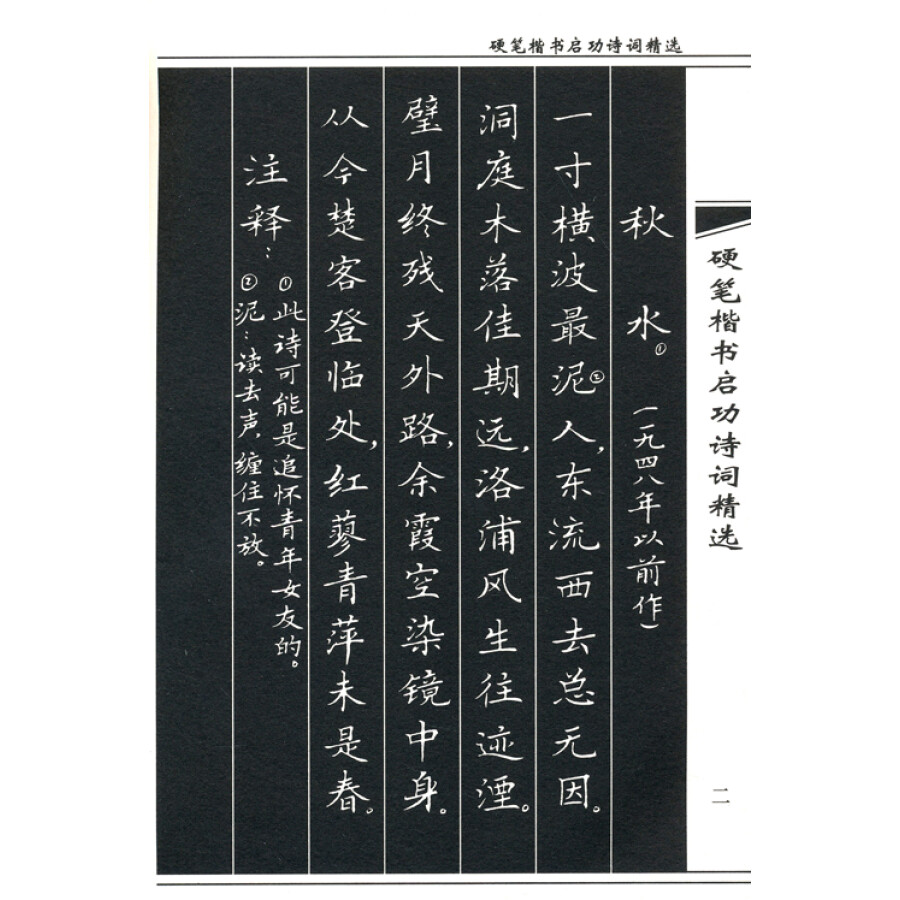 硬笔楷书启功诗词精选
硬笔楷书启功诗词精选
二
秋水① (一九四八年以前作)
一寸横波最泥②人,东流西去总无因。
洞庭木落佳期远,洛浦风生往迹湮。
璧月终残天外路,余霞空染镜中身。
从今楚客登临处,红蓼青萍未是春。
注释:
①此诗可能是追怀青年女友的。
②泥:读去声,缠住不放。